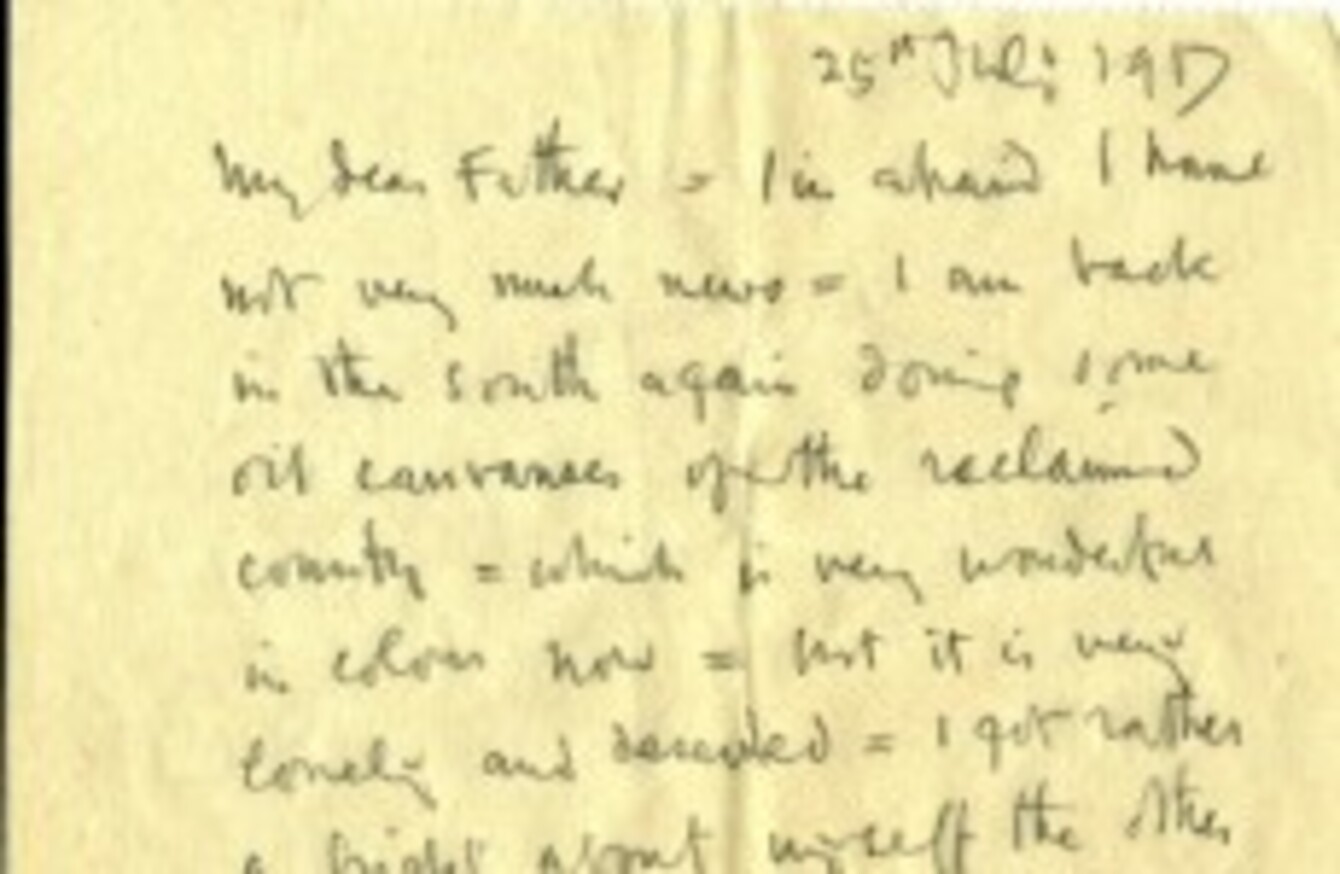 25th July 1917
My dear Father = I'm afraid I have
not very much news = I am back
in the south again doing some
oil canvases of the reclaimed
country = which is very wonderful
in colour now = but it is very
lonely and deserted = I got rather
a fright about myself the other